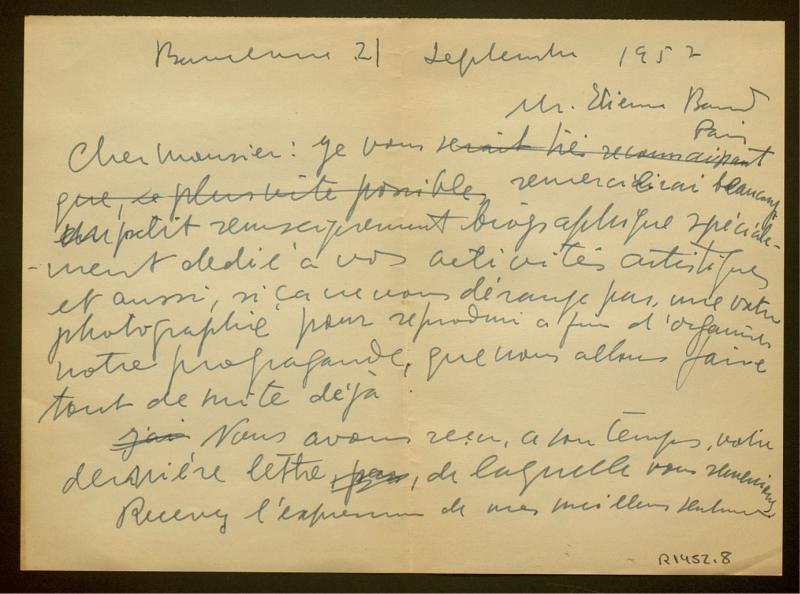 Barcelona 21 Septembre 1952
Mr. Etienne
Paris
Cher Monsieur: je vous serait très reconnaissant
que, le plus vite possible, remercierai beaucoup
un petit renseignement biographique spéciale-
-ment dedié à vos activités artistiques
et aussi, si ça ne vous dérange pas, une votre
photographie pour reproduir a fin d'organiser
notre propagande, que nous allons faire
tout de suite déjà.
j'ai Nous avons reçu, a son temps, votre
dernière lettre, de laquelle vous remercions
Recevez l'expression de mes meilleurs sentiments
R1452.8